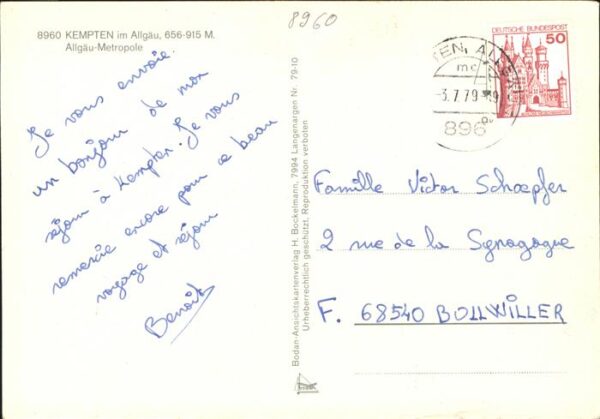 8960
8960 KEMPTEN im Allgäu, 656-915 M.
Allgäu-Metropole
Je vous envoie
un bonjour de mon
séjour à Kempten. Je vous
remercie encore pour ce beau
voyage et séjour
Benoit
Bodan-Ansichtskartenverlag H. Bockelmann, 7994 Langenargen Nr. 79-10
Urheberrechtlich geschützt. Reproduktion verboten
DEUTSCHE BUNDESPOST
50
TEN, ALLG
mc
-3.7.79-
896
Famille Victor Schoepfer
2 rue de la Synagogue
F. 68540 BOLLWILLER